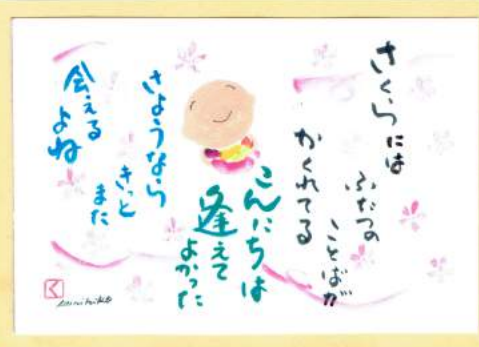 さくらには
ふたつの
ことばが
かくれてる
こんにちは
逢えて
よかった
さようなら
きっと
また
会える
よね